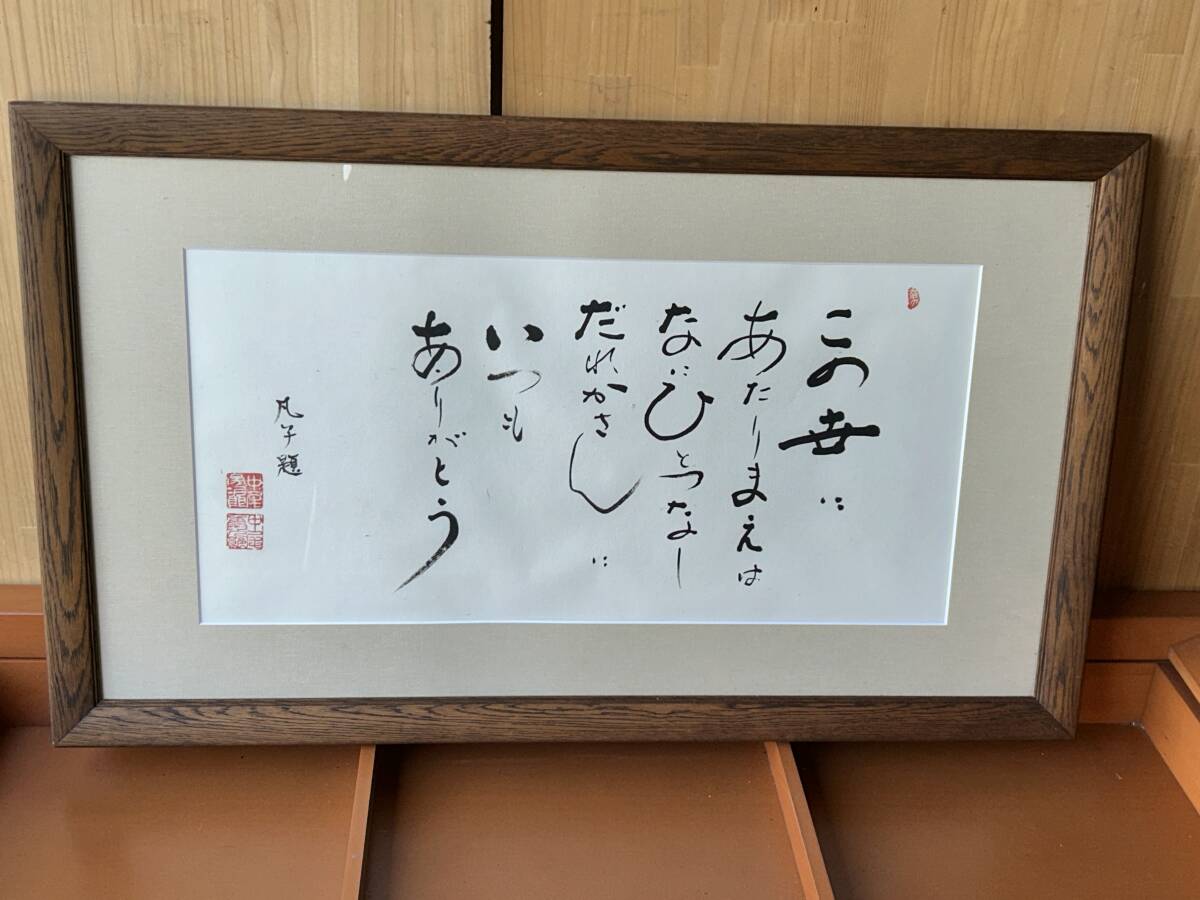 この世に
あたりまえは
なにひとつなし
だれかさんに
いつも
ありがとう
凡字題